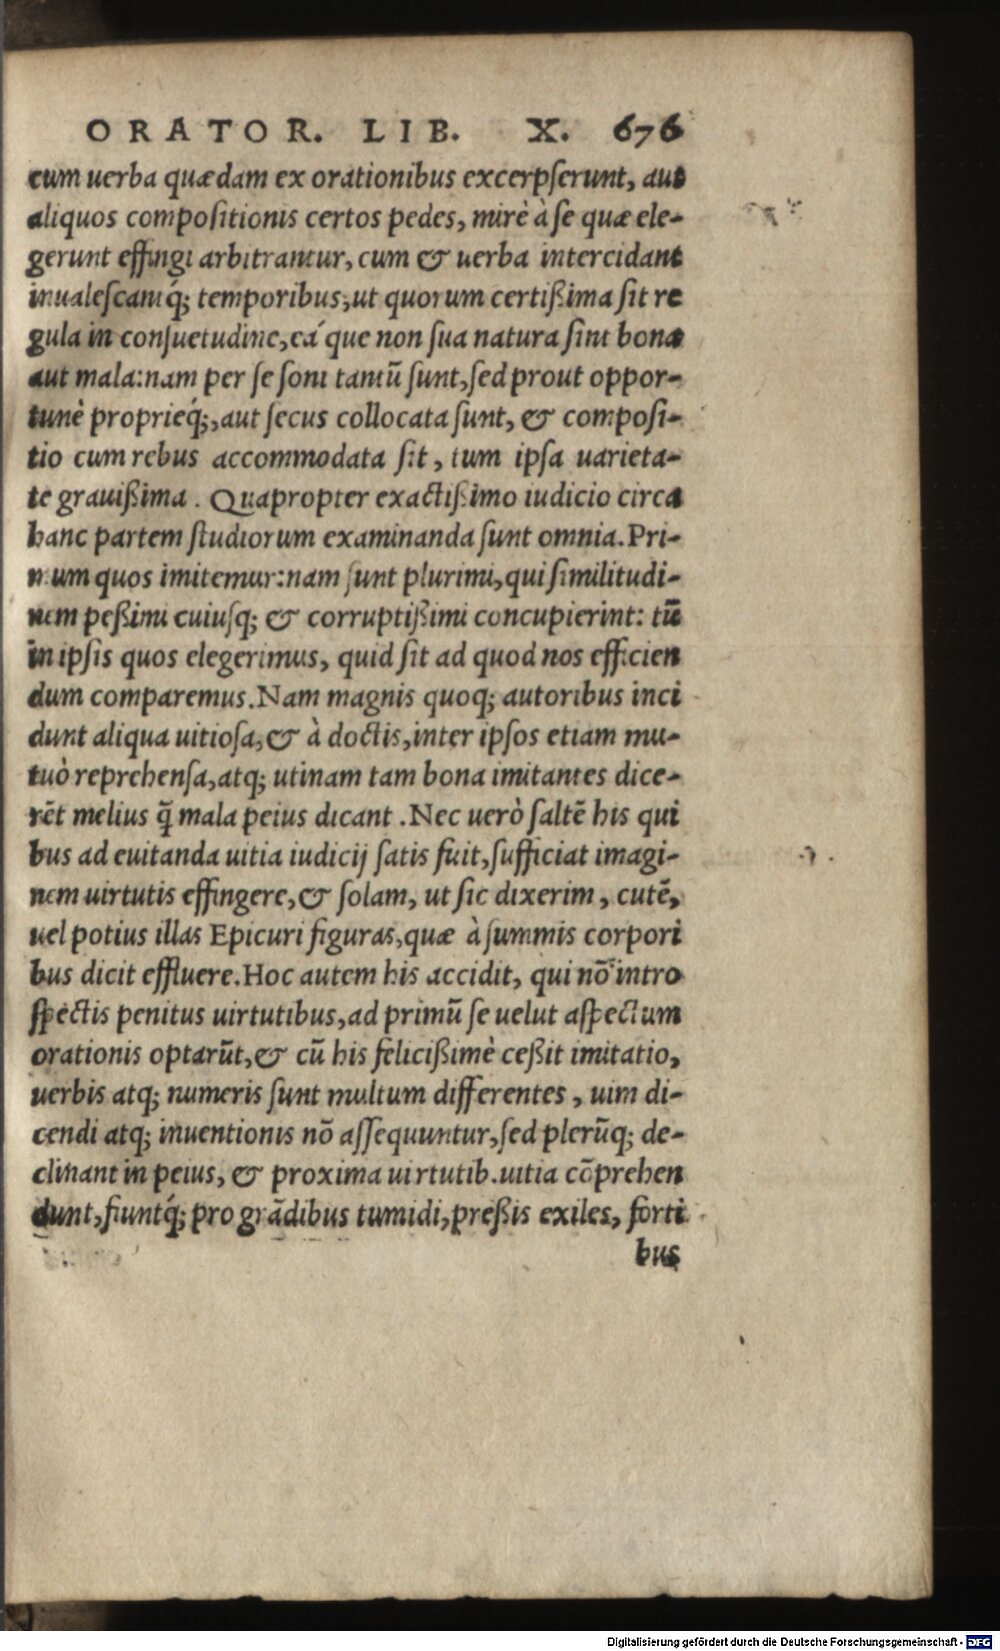 ORATOR. LIB. X. 676
cum uerba quædam ex orationibus excerpserunt, aut
aliquos compositionis certos pedes, mirè à se quæ ele-
gerunt effingi arbitrantur, cum & uerba intercidant
inualescantq́; temporibus, ut quorum certißima sit re
gula in consuetudine, eá que non sua natura sint bona
aut mala: nam per se soni tantū sunt, sed prout oppor-
tunè proprieq́;, aut secus collocata sunt, & composi-
tio cum rebus accommodata sit, tum ipsa uarieta-
te grauißima. Quapropter exactißimo iudicio circa
hanc partem studiorum examinanda sunt omnia. Pri-
mum quos imitemur: nam sunt plurimi, qui similitudi-
nem peßimi cuiusq; & corruptißimi concupierint: tū
in ipsis quos elegerimus, quid sit ad quod nos efficien
dum comparemus. Nam magnis quoq; autoribus inci
dunt aliqua uitiosa, & à doctis, inter ipsos etiam mu-
tuò reprehensa, atq; utinam tam bona imitantes dice-
rēt melius q̄ mala peius dicant. Nec uerò saltē his qui
bus ad euitanda uitia iudicij satis fuit, sufficiat imagi-
nem uirtutis effingere, & solam, ut sic dixerim, cutē,
uel potius illas Epicuri figuras, quæ à summis corpori
bus dicit effluere. Hoc autem his accidit, qui nō intro
spectis penitus uirtutibus, ad primū se uelut aspectum
orationis optarūt, & cū his felicißimè ceßit imitatio,
uerbis atq; numeris sunt multum differentes, uim di-
cendi atq; inuentionis nō assequuntur, sed plerūq; de-
clinant in peius, & proxima uirtutib. uitia cōprehen
dunt, fiuntq́; pro grādibus tumidi, preßis exiles, forti
bus
Digitalisierung gefördert durch die Deutsche Forschungsgemeinschaft - DFG